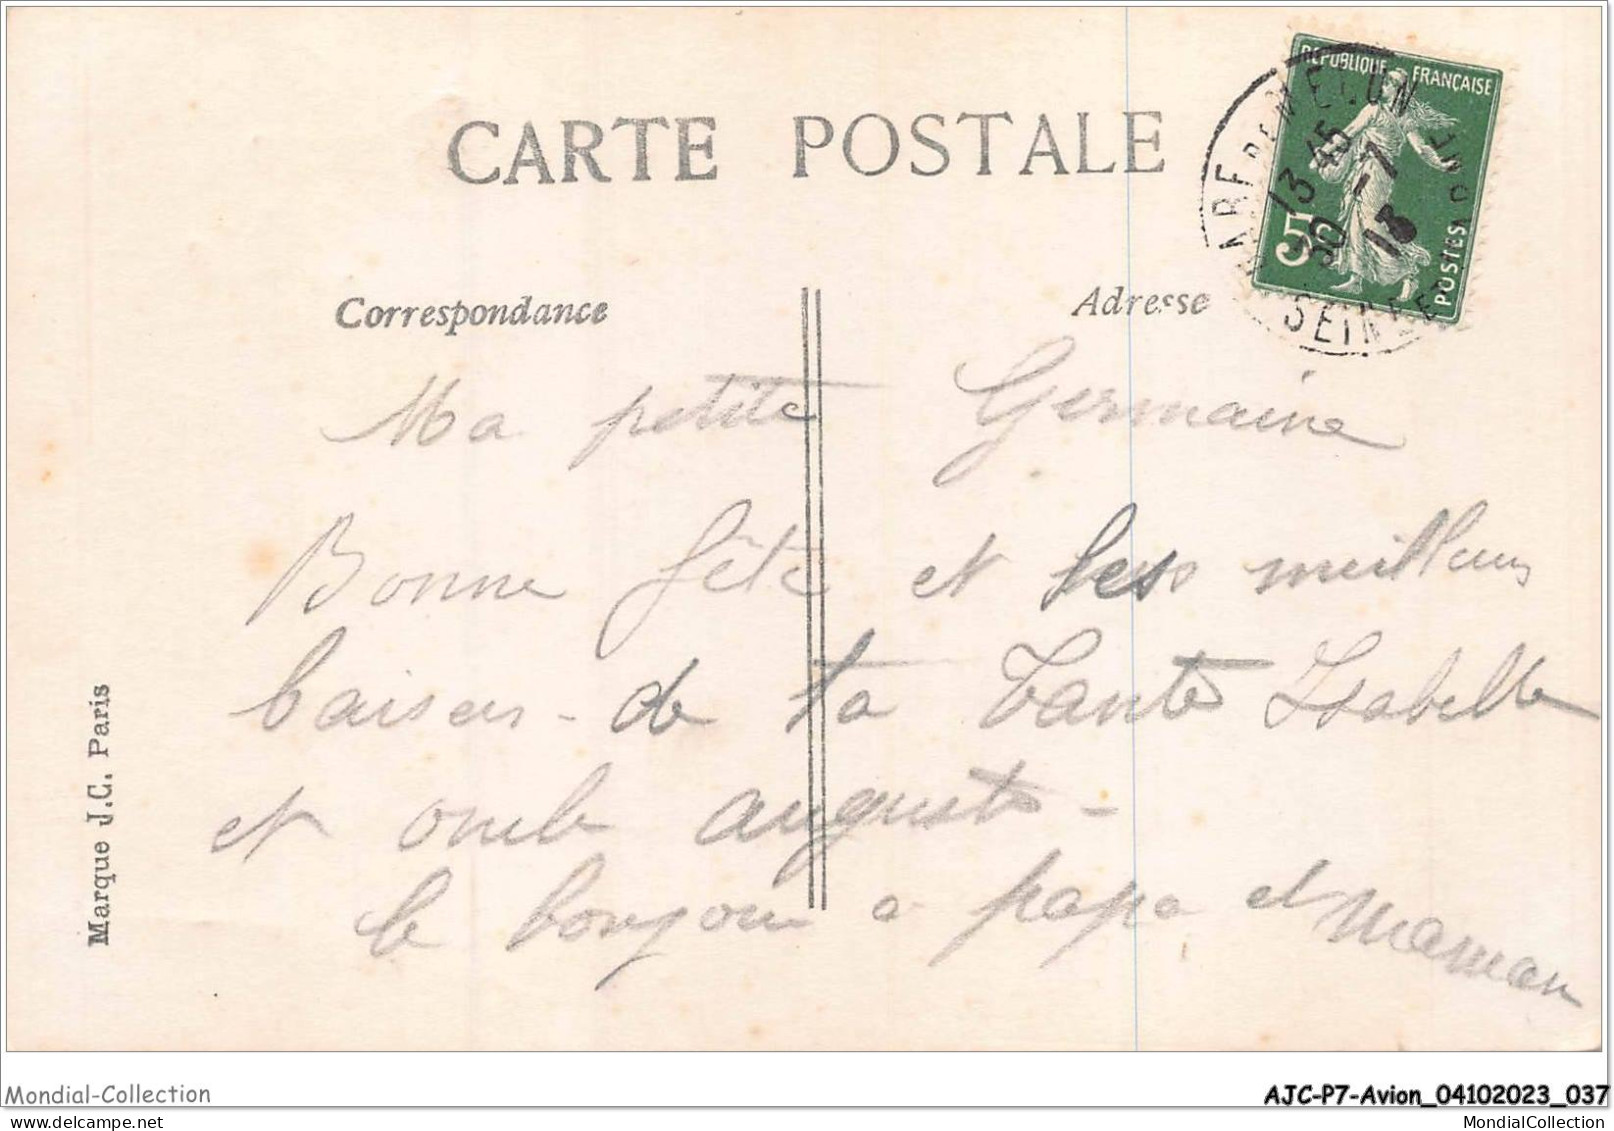 CARTE POSTALE
RÉPUBLIQUE FRANÇAISE
5c
POSTES
GARE DE MELUN
13 45
30 -7
13
SEINE ET
Correspondance
Adresse
Ma petite Germaine
Bonne fête et les meilleurs
baisers - de ta Tante Isabelle
et oncle auguste -
le bonjour a papa et Maman
Marque J.C. Paris
Mondial-Collection
AJC-P7-Avion_04102023_037
MondialCollection